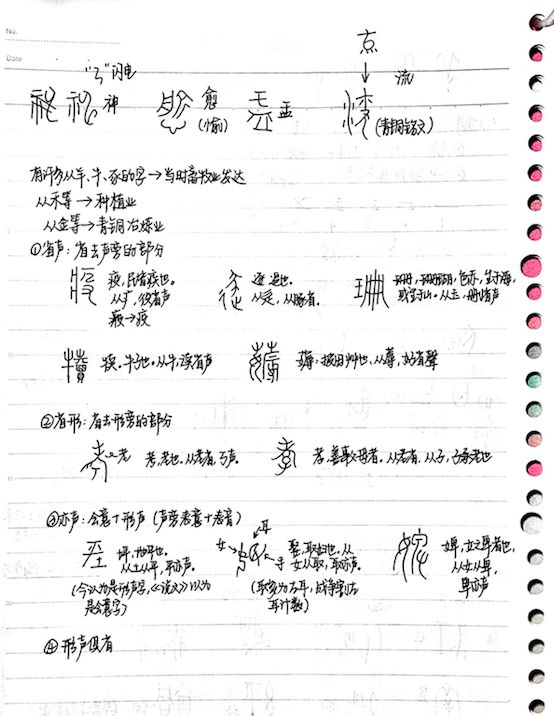 No.
Date
"ㄋ"闪电
神
愈
(愉)
盂
点
流
(青铜铭文)
有许多从羊、牛、豕的字→当时畜牧业发达
从禾等→种植业
从金等→青铜冶炼业
①省声:省去声旁的部分
疫,民皆疾也。
从疒,役省声
逐 追也。
从辵,从豚省。
珊瑚,色赤,生于海,
或生于山。从玉,删省声
犊。牛子也。从牛,渎省声
薅:拔田艸也,从蓐,好省聲
②省形:省去形旁的部分
老
考,老也。从老省,丂声。
孝,善事父母者。从老省,从子,子承老也
③亦声:会意+形声(声旁表意+表音)
坪,地平也。
从土从平,平亦声。
(今认为是形声字,《说文》以为
是会意字)
耳
女
娶,取妇也。从
女从取,取亦声。
(取多为右耳,战争割左
耳计数)
婢,女之卑者也,
从女从卑,
卑亦声
④形声俱省